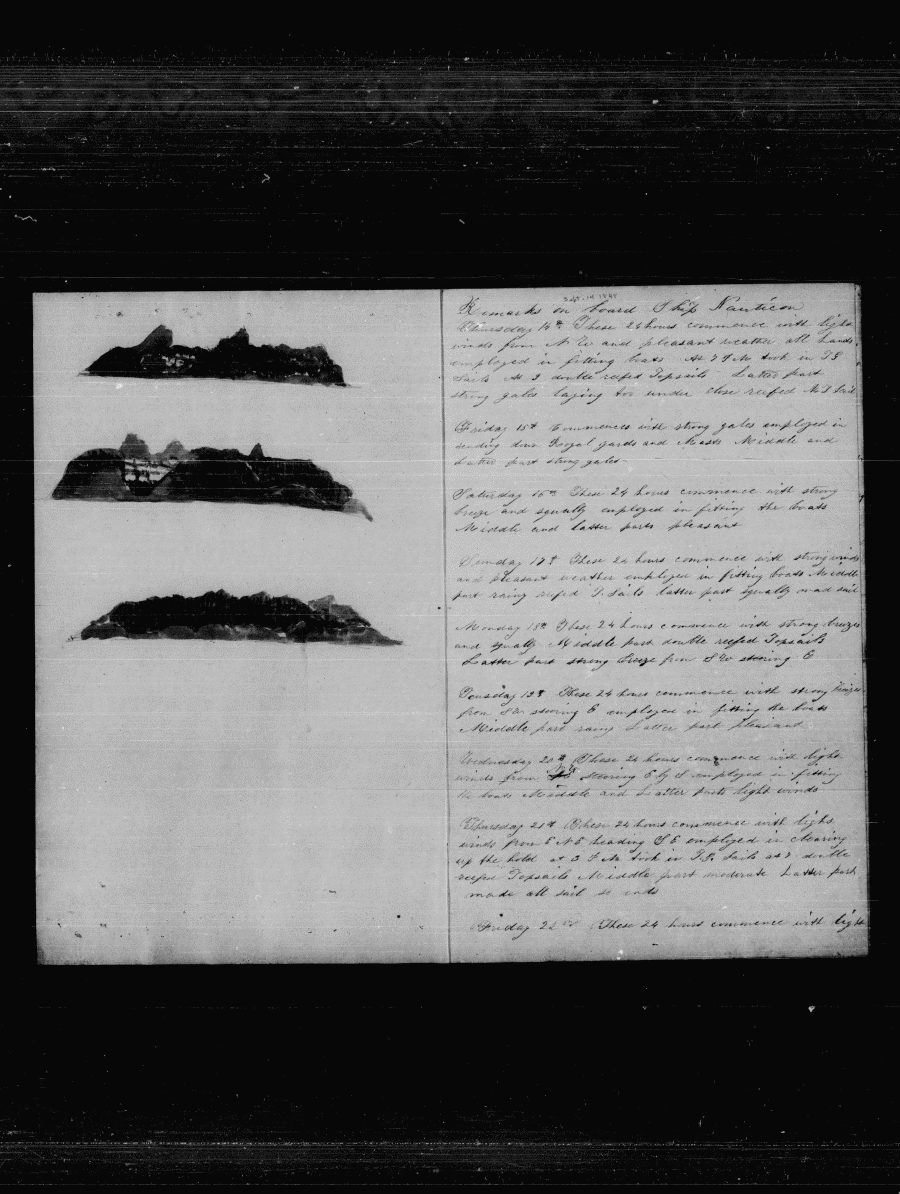 Sept. 14 1848
Remarks on board Ship Nauticon
Thursday 14th These 24 hours commence with light
winds from N W and pleasant weather all hands
employed in fitting boats At 7 P M took in T G
Sails At 9 double reefed Topsails Latter part
strong gales laying too under close reefed M T Sail
Friday 15th Commences with strong gales employed in
sending down Royal yards and Masts Middle and
Latter part strong gales
Saturday 16th These 24 hours commence with strong
breeze and squally employed in fitting the boats
Middle and latter parts pleasant
Sunday 17th These 24 hours commence with strong winds
and pleasant weather employed in fitting boats Middle
part rainy reefed T. Sails latter part squally mad sail
Monday 18th These 24 hours commence with strong breezes
and squally Middle part double reefed Topsails
Latter part strong breeze from S W steering E
Teusday 19th These 24 hours commence with strong breezes
from S W steering E employed in fitting the boats
Middle part rainy Latter part pleasant
Wednesday 20th These 24 hours commence with light
winds from steering E by S employed in fitting
the boats Middle and Latter parts light winds
Thursday 21st These 24 hours commence with light
winds from E N E heading S E employed in clearing
up the hold at 3 P M took in T. G. Sails at double
reefed Topsails Middle part moderate Latter part
made all sail so ends
Friday 22nd These 24 hours commence with light